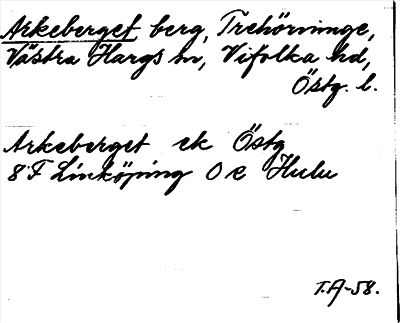 Arkeberget berg, Trehörninge,
Västra Hargs sn, Vifolka hd,
Östg. l.
Arkeberget ek Östg
8 F Linköping O e Hulu
T.A-58.